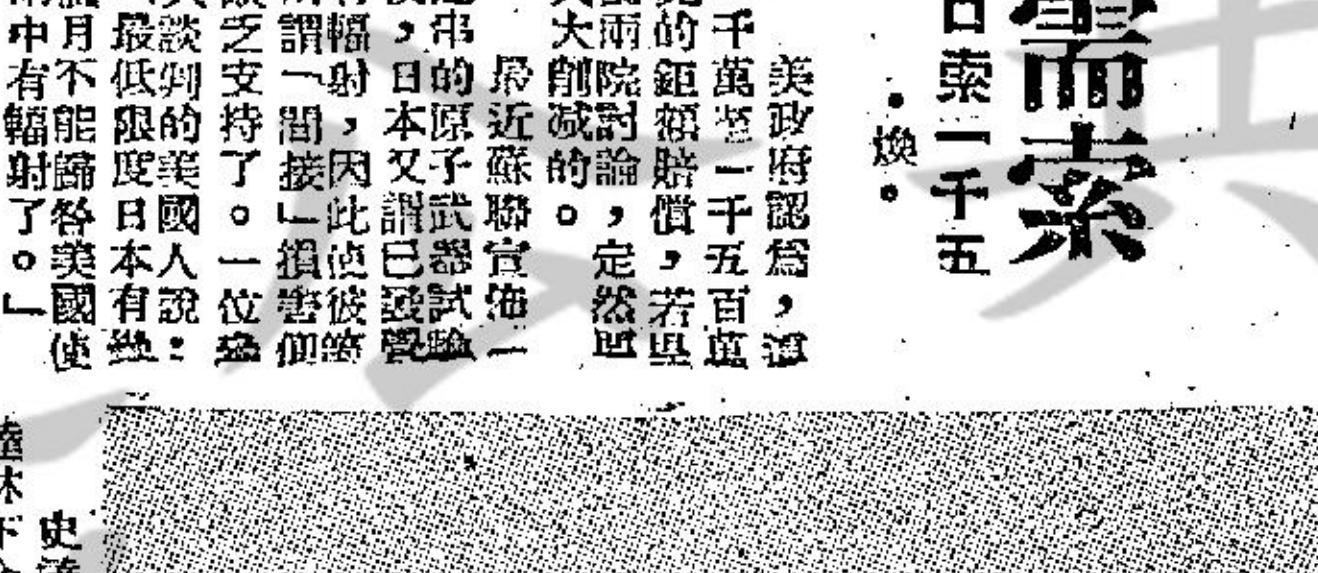 需索
日索一千五
·煥·
美政府認爲，
千萬至一千五百萬
的鉅額賠償，若
兩院討論，定然
大削减的。
最近蘇聯宣佈一
串的原子武器試驗
，日本又謂已發覺
輻射，因此使彼等
謂「間接」損害
乏支持了。一位參
談判的美國人說：
最低限度日本有幾
月不能歸咎美國使
中有輻射了。」
史